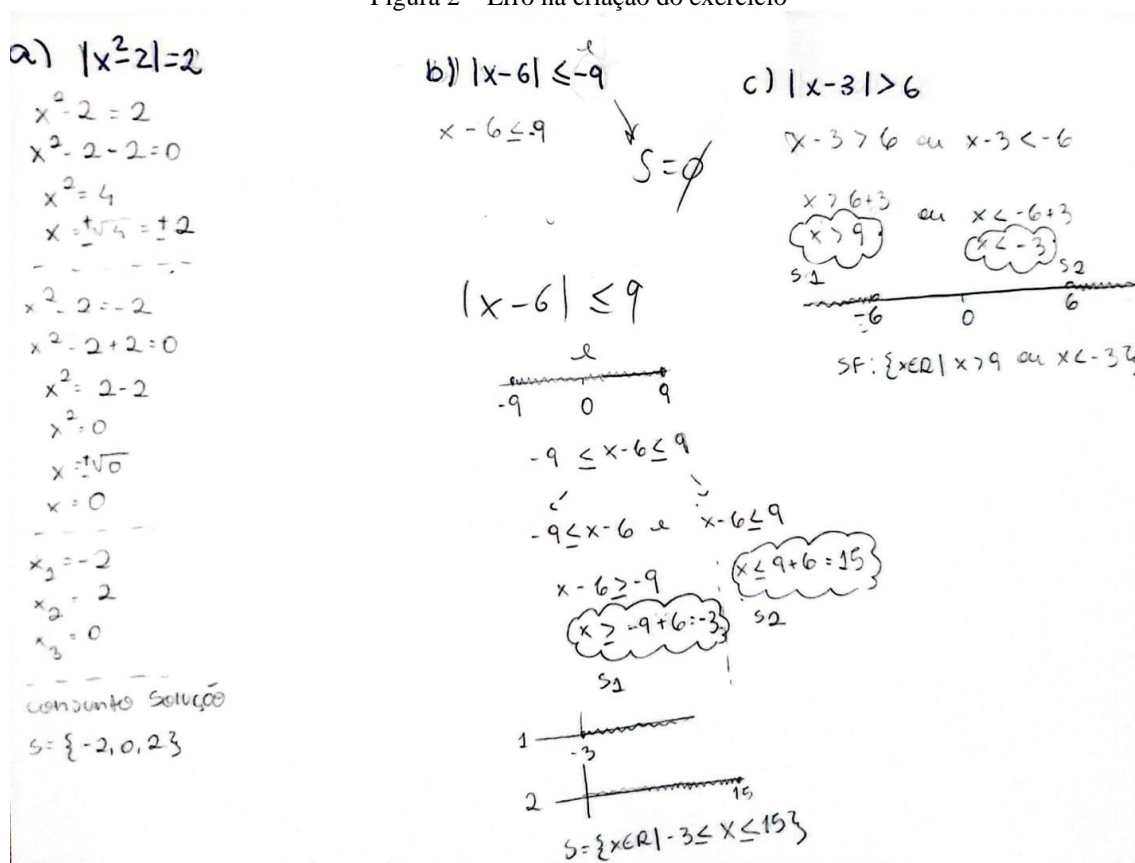 Figura 2 – Erro na criação do exercício
a) |x²-2|=2
x²-2 = 2
x²-2-2=0
x²=4
x=±√4=±2
x²-2=-2
x²-2+2=0
x²= 2-2
x²=0
x=±√0
x=0
x₁=-2
x₂= 2
x₃=0
conjunto solução
S={-2,0,2}
b) |x-6| ≤-9
x-6≤-9
S=∅
|x-6| ≤ 9
e
-9 0 9
-9 ≤ x-6 ≤ 9
-9≤x-6 e x-6≤9
x-6≥-9
x ≥ -9+6=-3
S1
x≤9+6=15
S2
1
-3
2
15
S={x∈R|-3≤x≤15}
c) |x-3|>6
x-3>6 ou x-3<-6
x>6+3 ou x<-6+3
x>9 x<-3
S1 S2
-6 0 6
SF: {x∈R| x>9 ou x<-3}